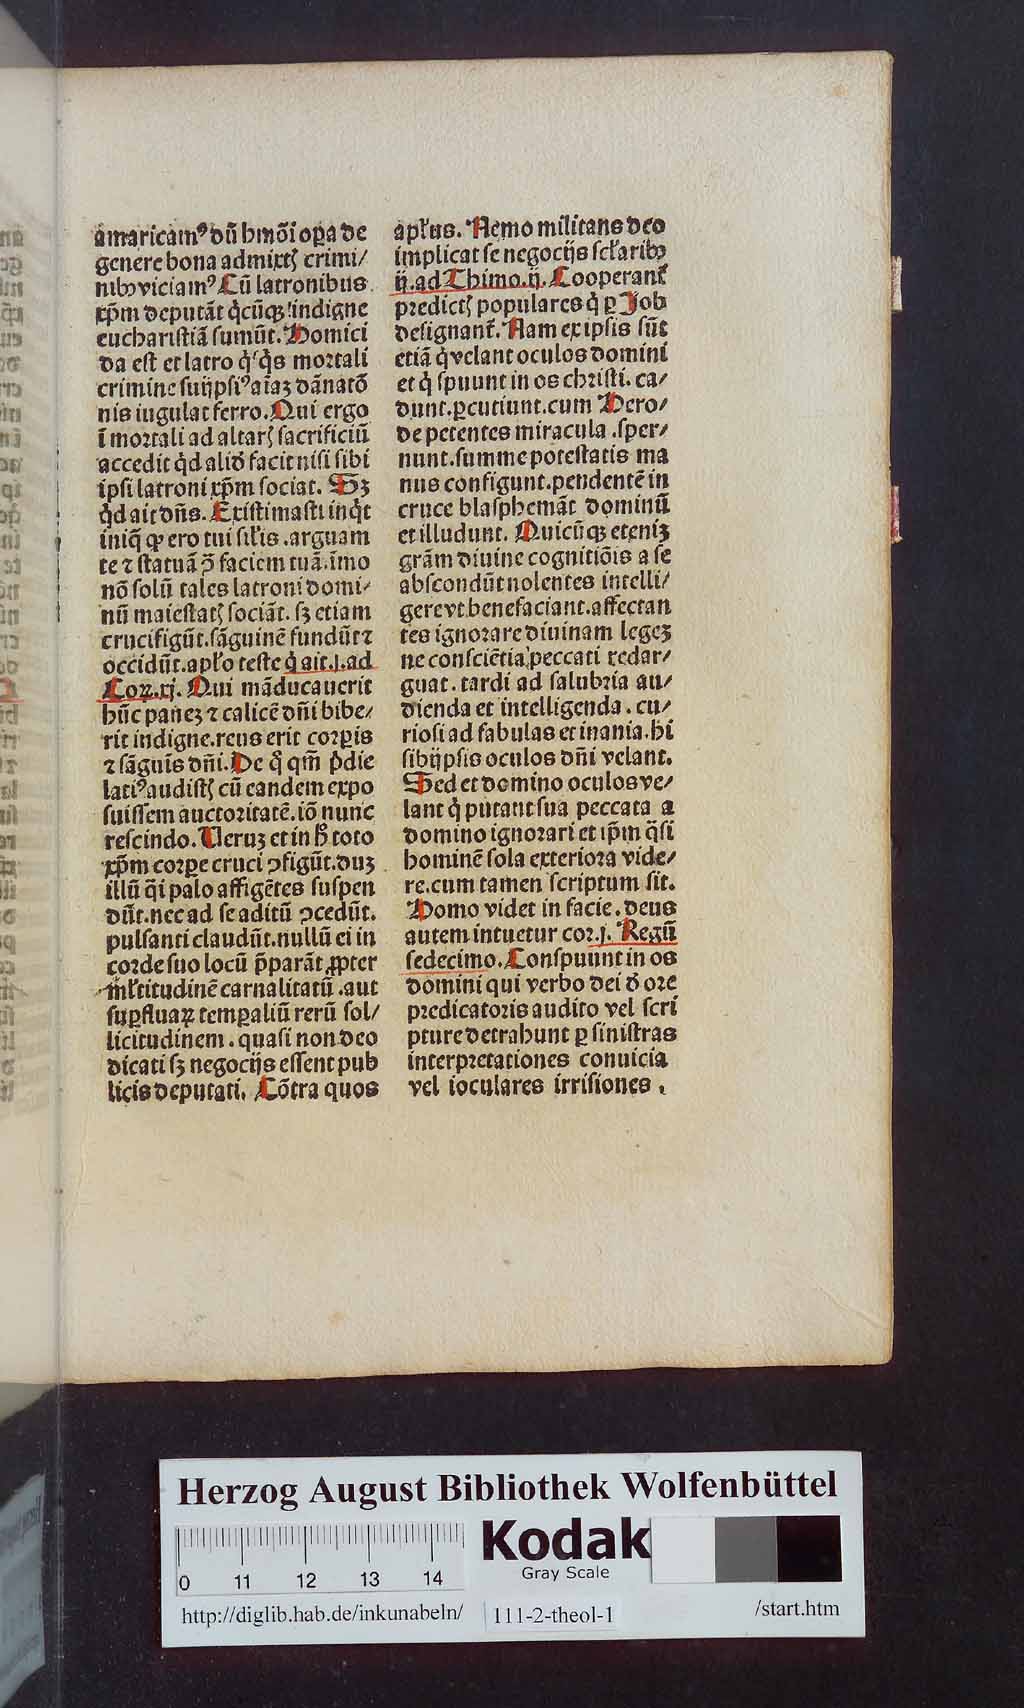 amaricamꝰ dū hmōi oꝑa de
genere bona admixtꝭ crimi/
nibꝫ viciamꝰ Cū latronibus
xp̄m deputāt q̇cūqꝫ indigne
eucharistiā sumūt. Homici
da est et latro q̇ q̇s mortali
crimine suijpsiꝰ aīaꝫ dānatō
nis iugulat ferro. Qui ergo
ī mortali ad altarꝭ sacrificiū
accedit q̇d aliđ facit nisi sibi
ipsi latroni xp̄m sociat. Sꝫ
q̇d ait dn̄s. Existimasti inq̇t
iniq̄ ꝙ ero tui sil̄is .arguam
te ⁊ statuā ꝯ̄ faciem tuā.īmo
nō solū tales latroni domi/
nū maiestatꝭ sociāt. sꝫ etiam
crucifigūt.sāguinē fundūt ⁊
occidūt.apl̄o teste q̇ ait.j.ad
Coꝝ.xj. Qui māducauerit
hūc paneꝫ ⁊ calicē dn̄i bibe/
rit indigne.reus erit corꝑis
⁊ sāguīs dn̄i. De q̊ qm̄ p̄die
latiꝰ audistꝭ cū eandem expo
suissem auctoritatē.iō nunc
rescindo. Ueruꝫ et in h̊ toto
xp̄m corꝑe cruci ꝯfigūt.duꝫ
illū q̄i palo affigētes suspen
dūt.nec ad se aditū ꝯcedūt.
pulsanti claudūt.nullū ei in
corde suo locū p̄parāt ꝓpter
ml̄titudinē carnalitatū .aut
suꝑfluaꝝ temꝑaliū rerū sol/
licitudinem. quasi non deo
dicati sꝫ negocijs essent pub
licis deputati. Cōtra quos
apl̄us. Nemo militans deo
implicat se negocijs scl̄aribꝫ
ij.ad Thimo.ij. Cooperant᷑
predictꝭ populares q̇ ꝑ Job
designant᷑. Nam ex ipsis sūt
etiā q̇ velant oculos domini
et q̇ spuunt in os christi. ca/
dunt.ꝑcutiunt.cum Hero/
de petentes miracula .sper/
nunt.summe potestatis ma
nus configunt.pendentē in
cruce blasphemāt dominū
et illudunt. Quicūqꝫ eteniꝫ
grām diuine cognitiōis a se
abscondūt nolentes intelli/
gere vt benefaciant.affectan
tes ignorare diuinam legeꝫ
ne consciētia peccati redar/
guat. tardi ad salubria au/
dienda et intelligenda. cu/
riosi ad fabulas et inania.hi
sibijpsis oculos dn̄i velant.
Sed et domino oculos ve/
lant q̇ putant sua peccata a
domino ignorari et ip̄m q̄si
hominē sola exteriora vide/
re.cum tamen scriptum sit.
Homo videt in facie. deus
autem intuetur cor.j. Regū
sedecimo. Conspuunt in os
domini qui verbo dei đ ore
predicatoris audito vel scri
pture detrahunt ꝑ sinistras
interpretationes conuicia
vel ioculares irrisiones .
Herzog August Bibliothek Wolfenbüttel
0 11 12 13 14
Kodak
Gray Scale
http://diglib.hab.de/inkunabeln/ 111-2-theol-1 /start.htm